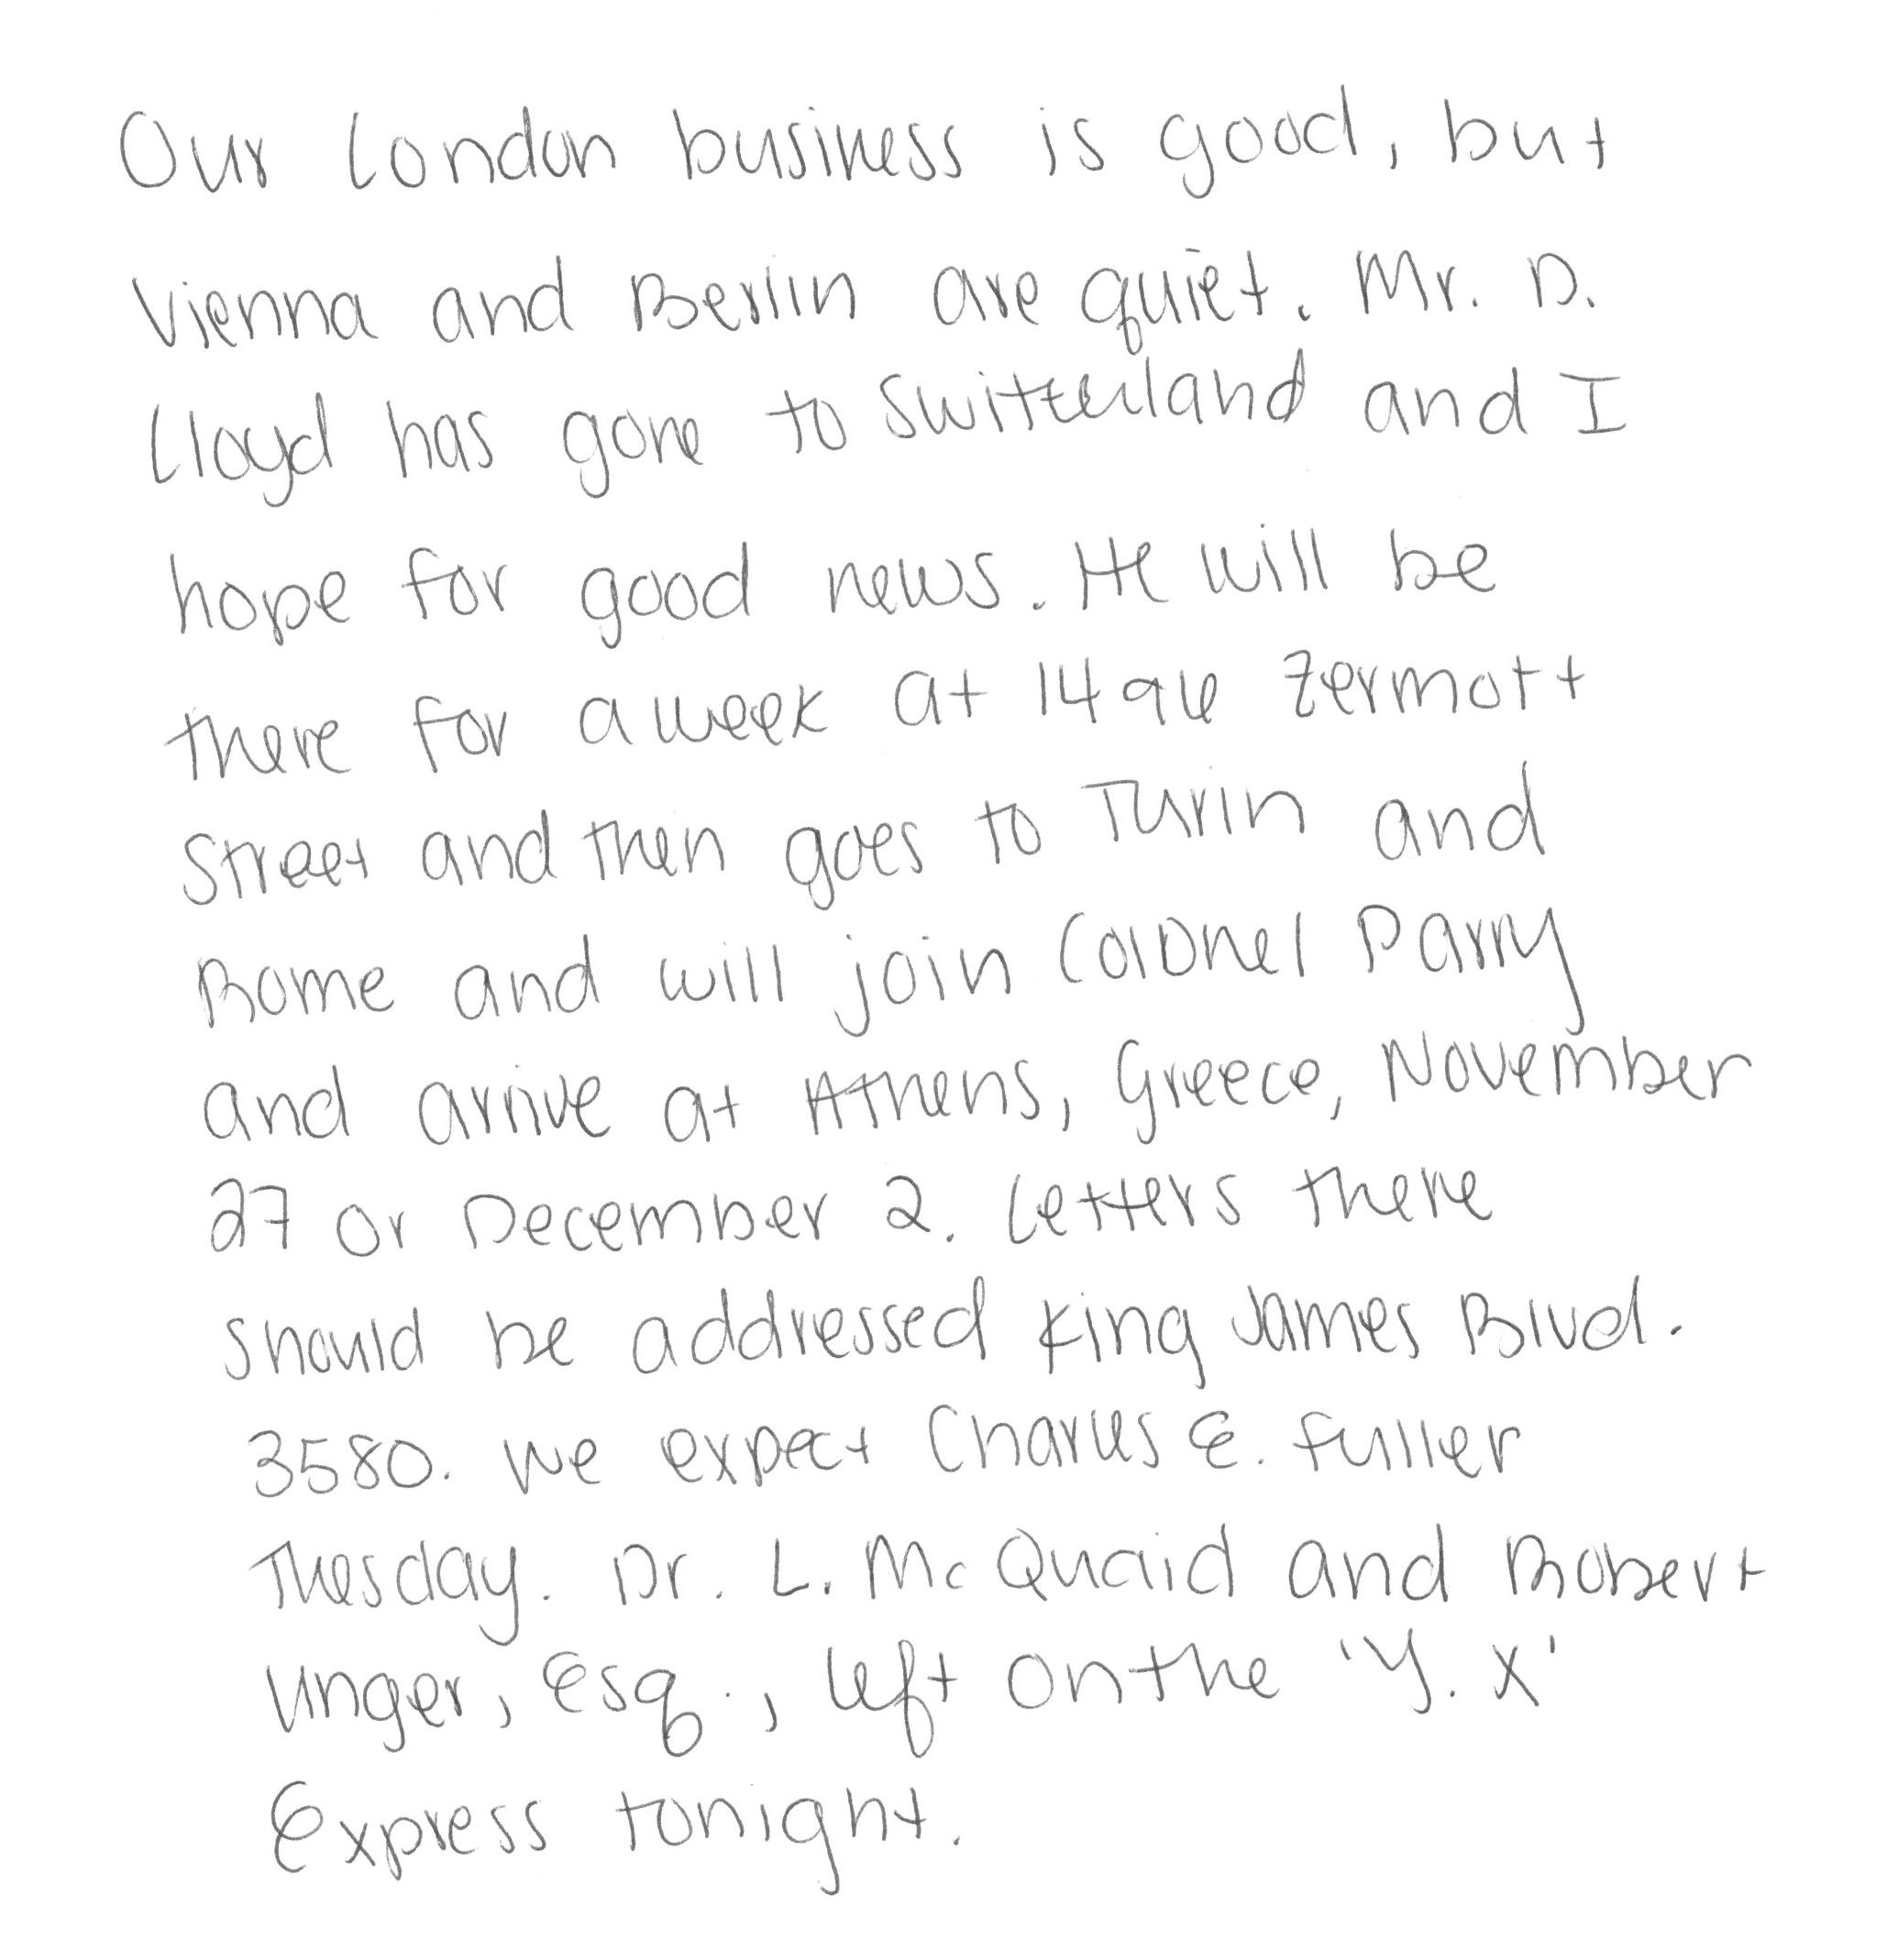 Our London business is good, but
Vienna and Berlin are quiet. Mr. D.
Lloyd has gone to Switzerland and I
hope for good news. He will be
there for a week at 1496 Zermott
Street and then goes to Turin and
Rome and will join Colonel Parry
and arrive at Athens, Greece, November
27 or December 2. Letters there
should be addressed King James Blvd.
3580. We expect Charles E. Fuller
Tuesday. Dr. L. McQuaid and Robert
Unger, Esq., left on the 'Y. X'
Express tonight.